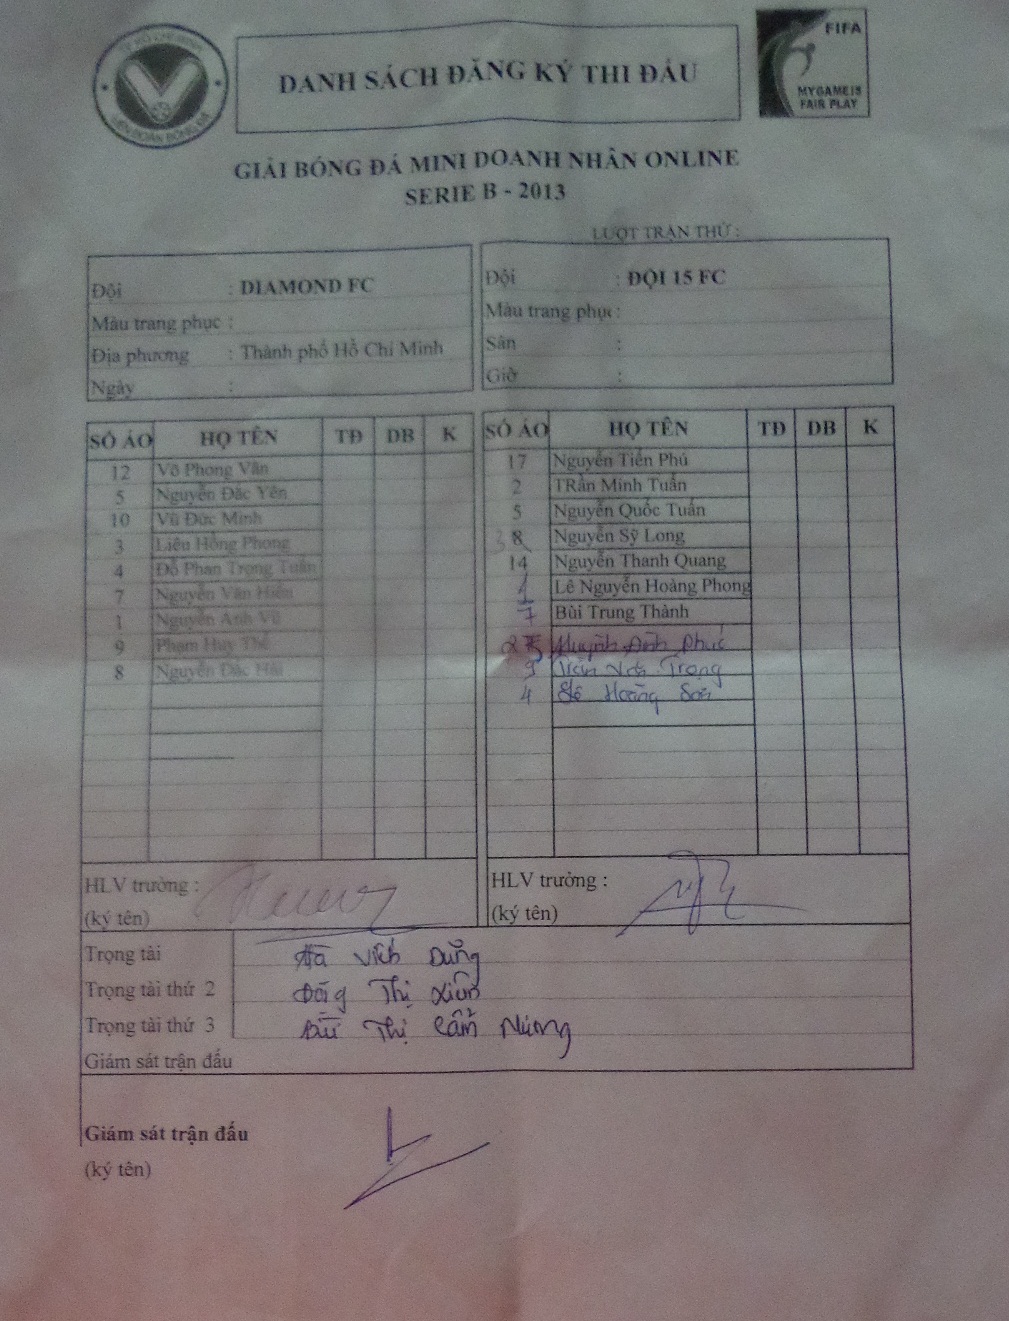 TP HỒ CHÍ MINH
LIÊN ĐOÀN BÓNG ĐÁ
DANH SÁCH ĐĂNG KÝ THI ĐẤU
FIFA
MY GAME IS
FAIR PLAY
GIẢI BÓNG ĐÁ MINI DOANH NHÂN ONLINE
SERIE B - 2013
LƯỢT TRẬN THỨ :
Đội : DIAMOND FC
Màu trang phục :
Địa phương : Thành phố Hồ Chí Minh
Ngày :
Đội : ĐỘI 15 FC
Màu trang phục :
Sân :
Giờ :
SỐ ÁO HỌ TÊN TĐ DB K
12 Võ Phong Vân
5 Nguyễn Đắc Yên
10 Vũ Đức Minh
3 Liêu Hồng Phong
4 Đỗ Phan Trọng Tuấn
7 Nguyễn Văn Hiếu
1 Nguyễn Anh Vũ
9 Phạm Huy Thế
8 Nguyễn Đắc Hải
SỐ ÁO HỌ TÊN TĐ DB K
17 Nguyễn Tiến Phú
2 TRần Minh Tuấn
5 Nguyễn Quốc Tuấn
8 Nguyễn Sỹ Long
14 Nguyễn Thanh Quang
1 Lê Nguyễn Hoàng Phong
7 Bùi Trung Thành
Huỳnh Anh Phúc
9 Trần Trọng
4 Hoàng Sơn
HLV trưởng :
(ký tên)
HLV trưởng :
(ký tên)
Trọng tài Hà Vích Dũng
Trọng tài thứ 2 Thị Xiêm
Trọng tài thứ 3 Bùi Thị Cẩm Nương
Giám sát trận đấu
Giám sát trận đấu
(ký tên)